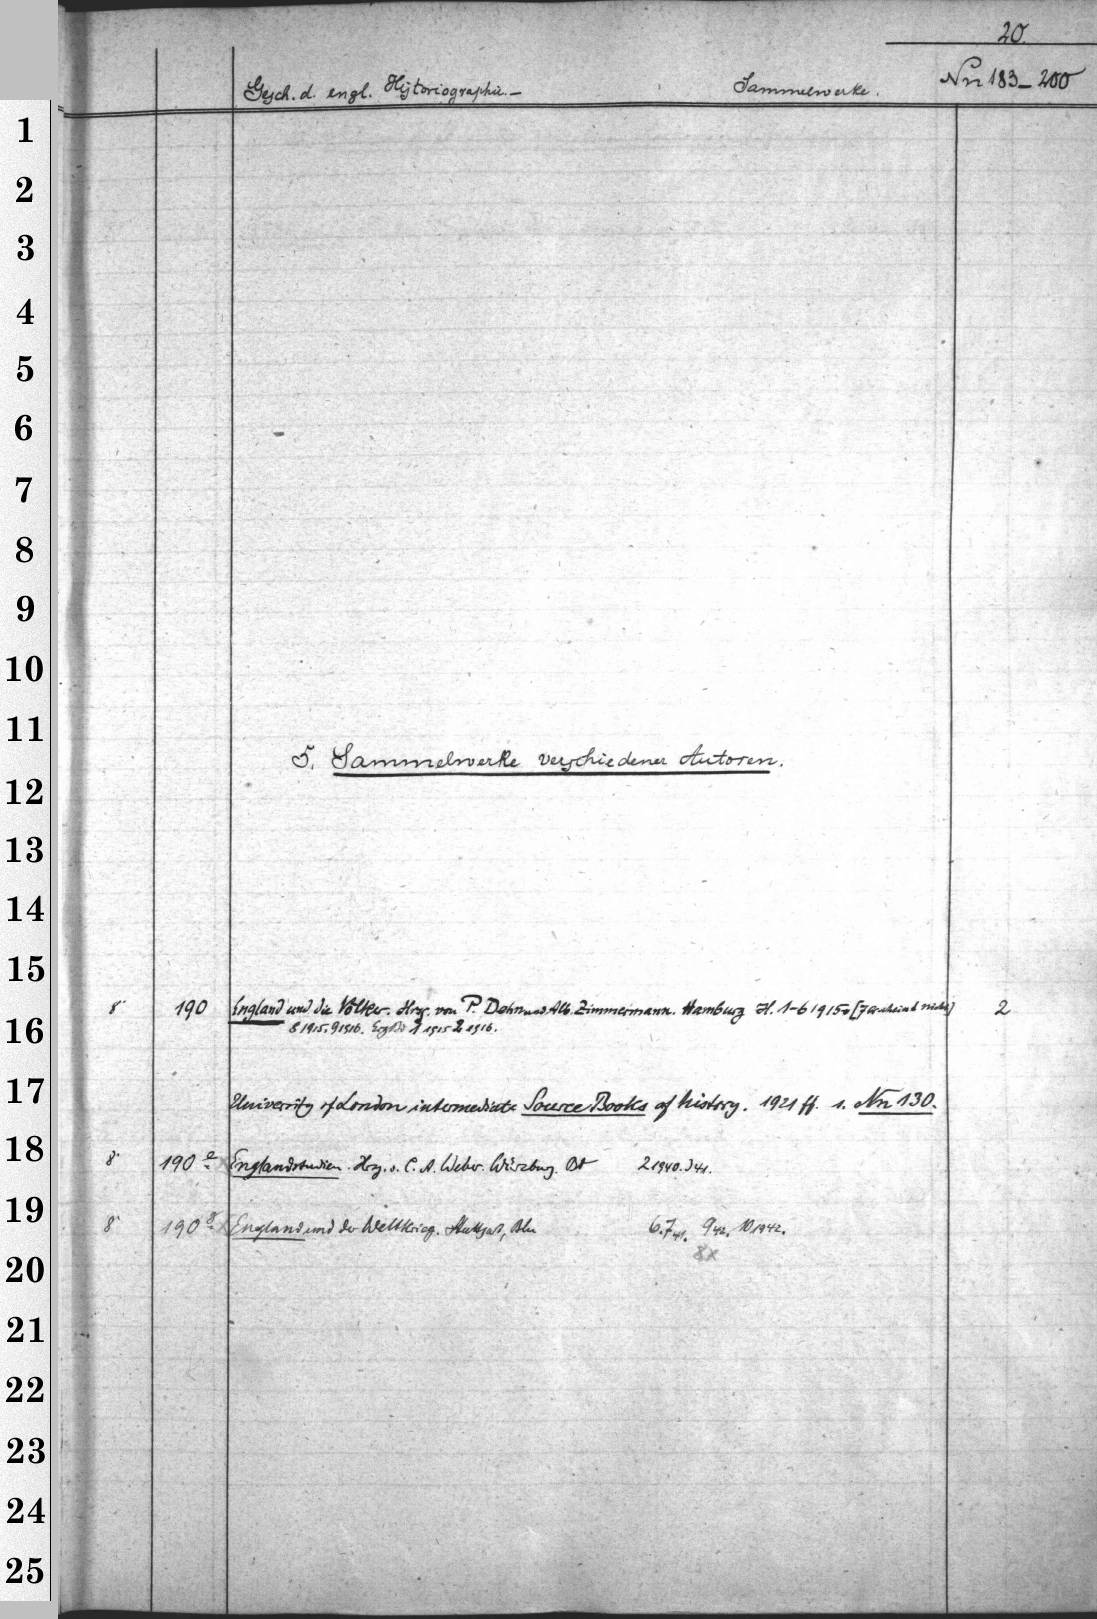 20.
Gesch. d. engl. Historiographie. — Sammelwerke. Nn 183–200
1
2
3
4
5
6
7
8
9
10
11
5. Sammelwerke verschiedener Autoren.
12
13
14
15
8° 190 England und die Völker. Hrsg. von P. Dehn und Alb. Zimmermann. Hamburg H. 1-6 1915. [7 erscheint nicht] 2
16
8 1915. 9 1916. 1 1915 2 1916.
17
University of London intermediate Source Books of history. 1921 ff. s. Nn 130.
18
8° 190 a Englandstudien. Hrsg. v. C. A. Weber. Würzburg. 2 1940. 3 41.
19
8° 190 England und der Weltkrieg. Stuttgart, Bln 6.7 41. 9 42. 10 1942.
8x
20
21
22
23
24
25